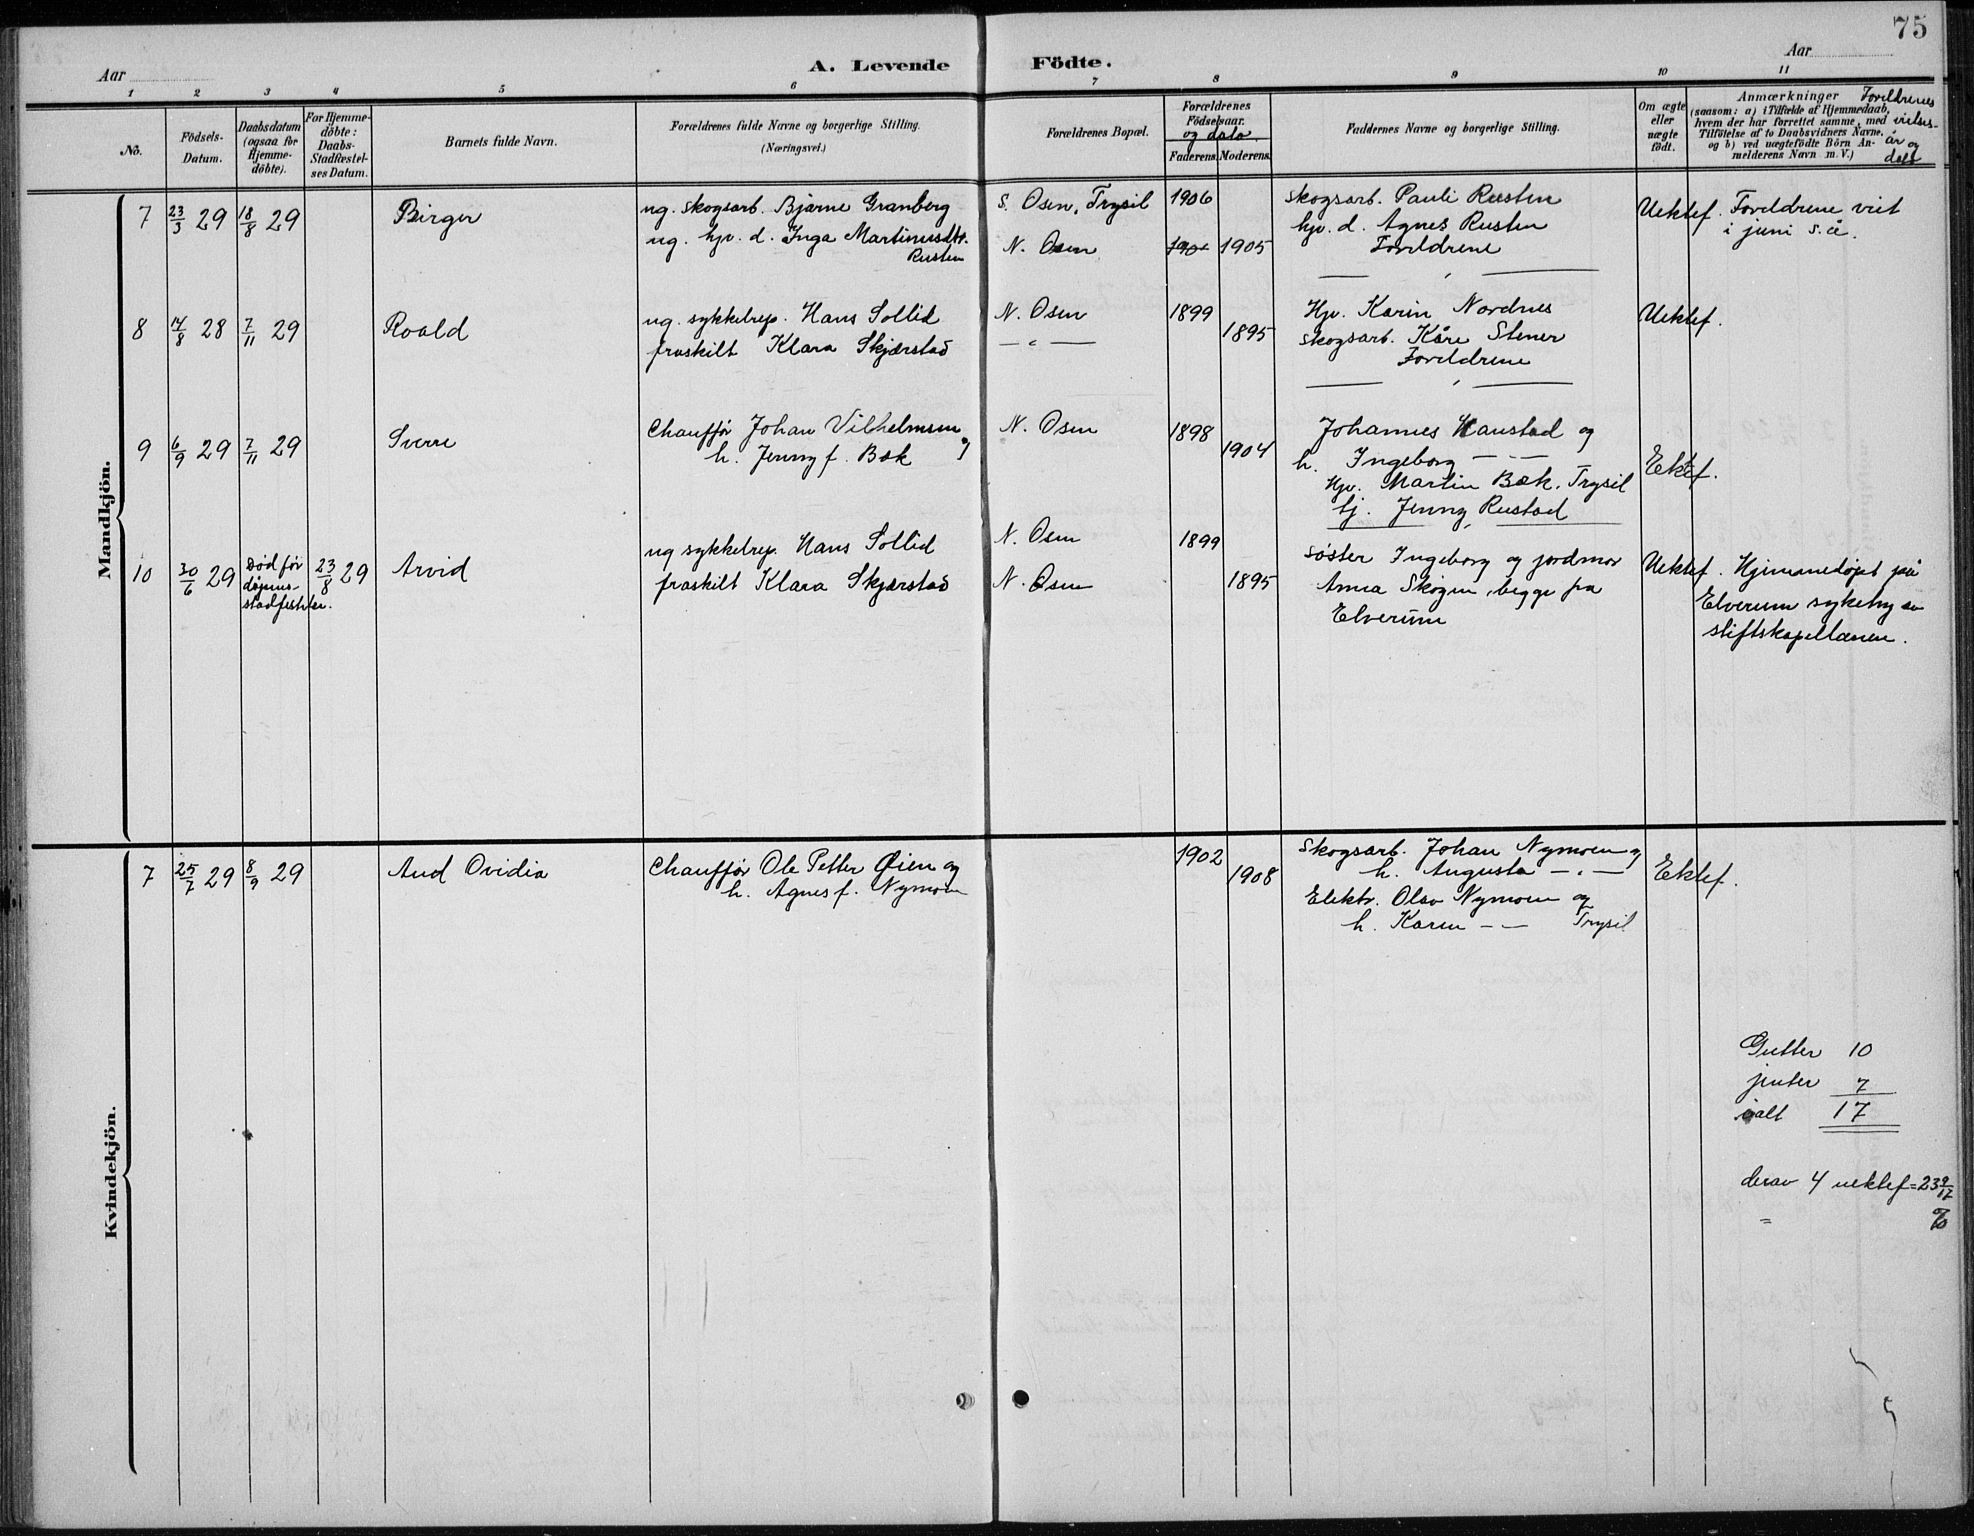 75
Aar
A. Levende
Födte.
Aar
1
2
3
4
5
6
7
8
9
10
11
No.
Födsels-
Datum.
Daabsdatum
(ogsaa for
Hjemme-
döbte).
For Hjemme-
döbte:
Daabs-
Stadfæstel-
ses Datum.
Barnets fulde Navn.
Forældrenes fulde Navne og borgerlige Stilling.
(Næringsvei.)
Forældrenes Bopæl.
Forældrenes
Födselsaar.
og dato
Faderens.
Moderens.
Faddernes Navne og borgerlige Stilling.
Om ægte
eller
uægte
födt.
Anmærkninger
(saasom: a) i Tilfælde af Hjemmedaab,
hvem der har forrettet samme, med
Tilföielse af to Daabsvidners Navne.
og b) ved uægtefödte Börn An-
melderens Navn m. V.)
Foreldrenes
vielses-
år og
dato
Mandkjön.
7
23/3 29
18/8 29
Birger
ug. skogsarb. Bjarne Granberg
ug. hjv. d. Inga Martinusdtr.
Rusten
S. Osen, Trysil
N. Osen
1906
1905
skogsarb. Pauli Rusten
hjv. d. Agnes Rusten
Foreldrene
Uektef.
Foreldrene viet
i juni s. å.
8
14/8 28
7/11 29
Roald
ug. sykkelrep. Hans Sollid
fraskilt Klara Skjærstad
N. Osen
— " —
1899
1895
Hjv. Karin Nordnes
skogsarb. Kåre Stener
Foreldrene
Uektef.
9
6/9 29
7/11 29
Sverre
Chauffør Johan Vilhelmsen og
h. Jenny f. Bæk
N. Osen
1898
1904
Johannes Haustad og
h. Ingeborg — " —
Hjv. Martin Bæk, Trysil
tj. Jenny Rustad
Ektef.
10
30/6 29
Død før
dåpens
stadfestelse.
23/8 29
Arvid
ug sykkelrep. Hans Sollid
fraskilt Klara Skjærstad
N. Osen
N. Osen
1899
1895
søster Ingeborg og jordmor
Anna Skogen, begge fra
Elverum
Uektef.
Hjemmedøpt på
Elverum sykehus av
stiftskapellanen.
Kvindekjön.
7
25/7 29
8/9 29
Aud Ovidia
Chauffør Ole Petter Øien og
h. Agnes f. Nymoen
1902
1908
Skogsarb. Johan Nymoen og
h. Augusta — " —
Elektr. Olav Nymoen og
h. Karen — — Trysil
Ektef.
Gutter 10
jenter 7
ialt 17
derav 4 uektef = 23 9/17
= %